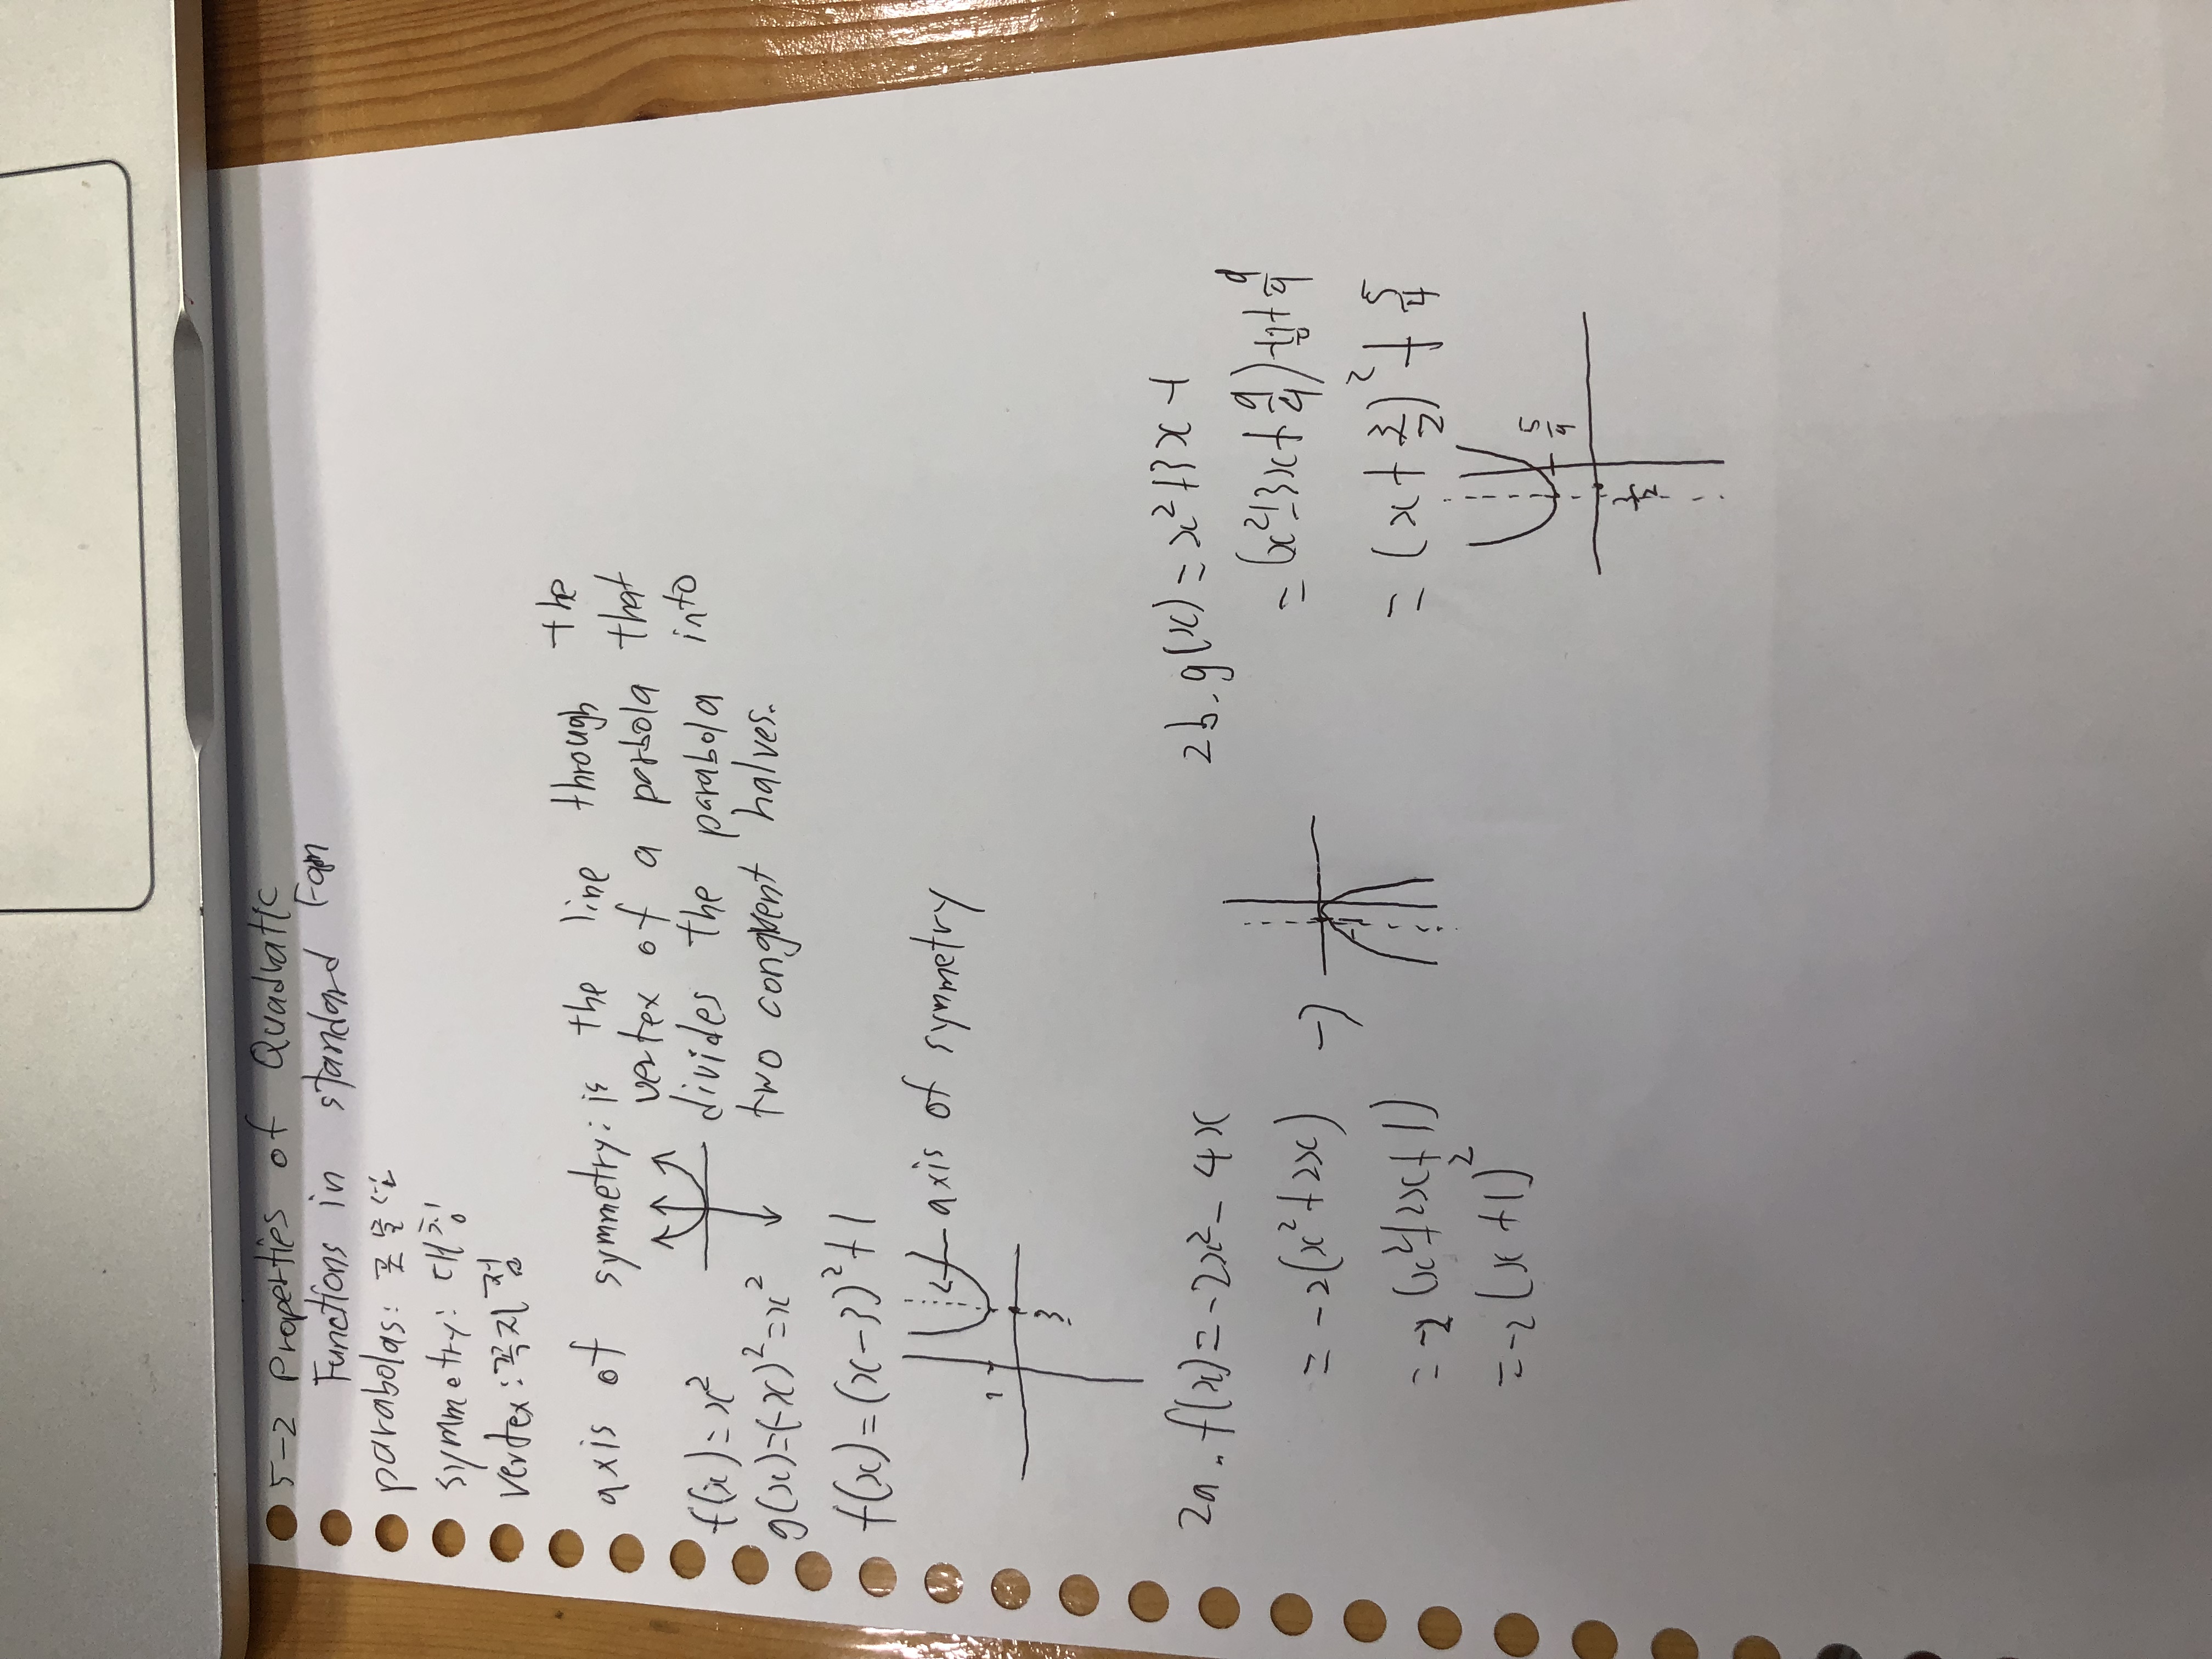 5-2 Properties of Quadratic
Functions in standard Form
parabolas: 포물선
symmetry: 대칭
vertex: 꼭지점
axis of symmetry: is the line through the
vertex of a parbola that
divides the parabola into
two congruent halves.
f(x)=x²
g(x)=(-x)²=x²
f(x)=(x-3)²+1
axis of symmetry
1
3
2a. f(x)=-2x²-4x
=-2(x²+2x) →
=-2(x²+2x+1)
=-2(x+1)²
-1
2b. g(x)=x²+3x-1
=(x²+3x+9/4)
=(x+3/2)²+5/4
5/4